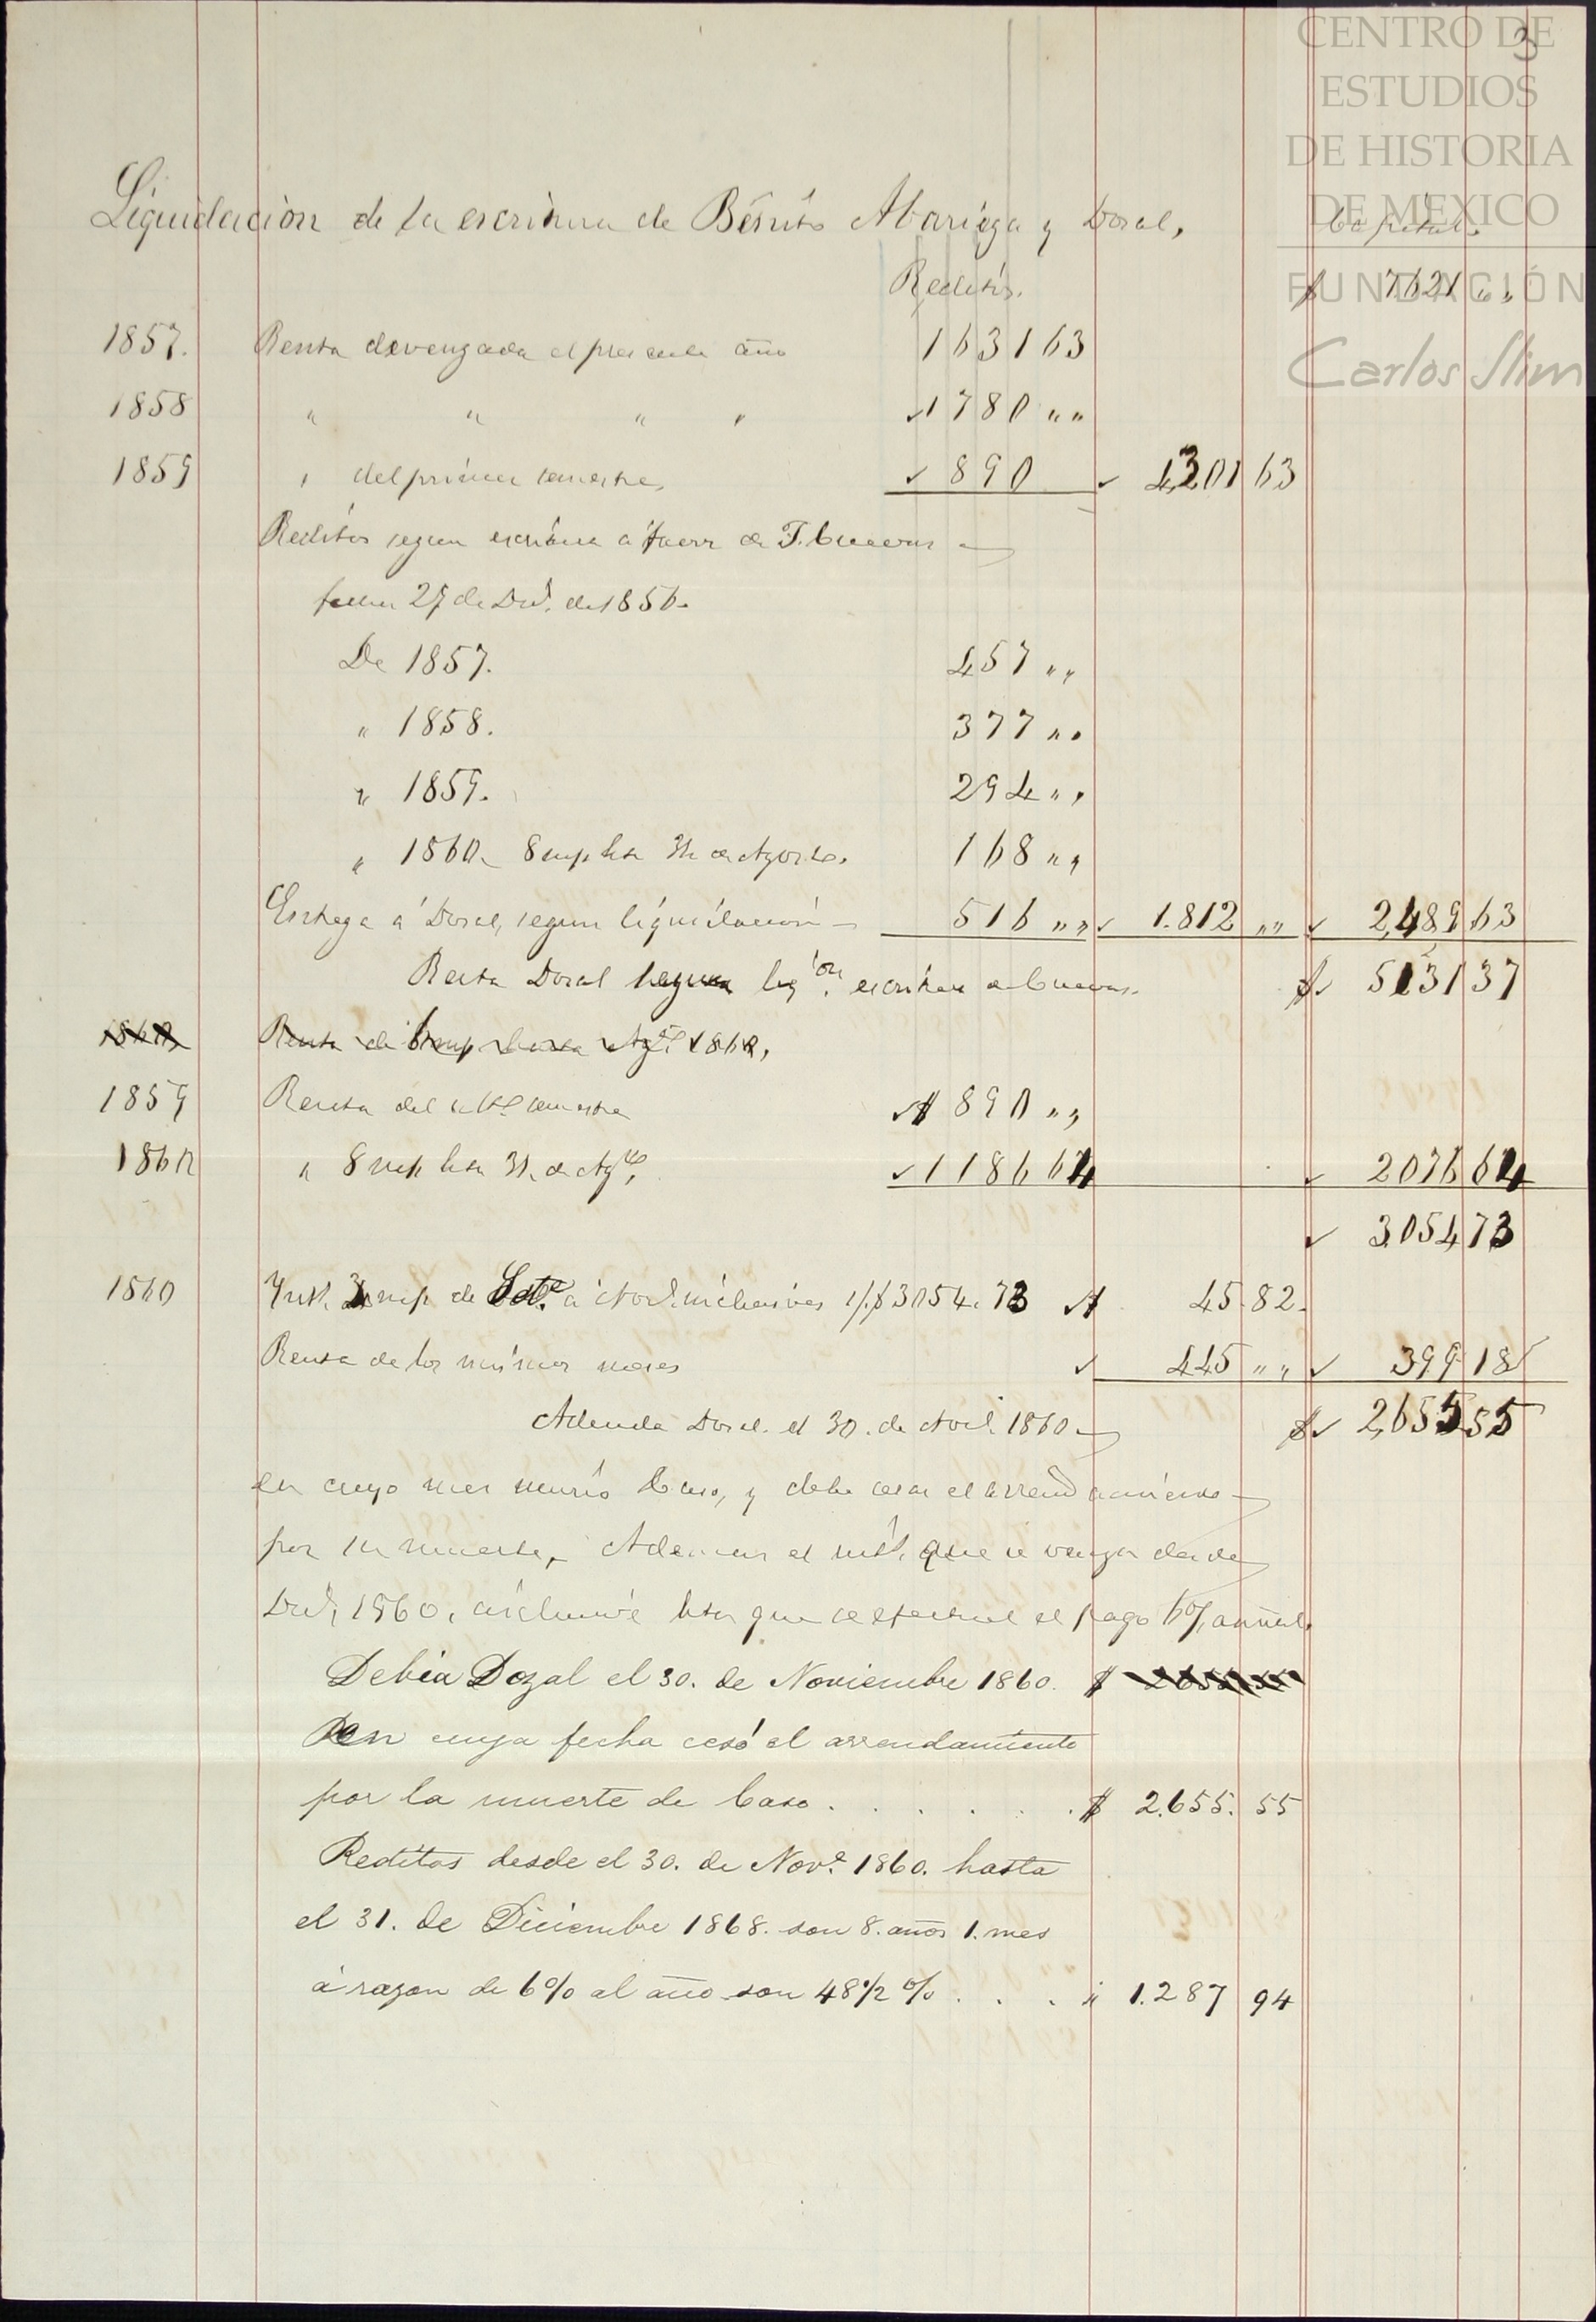 CENTRO DE
ESTUDIOS
DE HISTORIA
DE MEXICO
FUNDACIÓN
Carlos Slim
3
Liquidacion de la escritura de Benito Abariega y Dosal,
Capital.
Reditos. $ 7621 „ „
1857. Renta devengada el presente año 1631 63
1858 „ „ „ „ ✓ 1780 „ „
1859 „ del primer semestre, ✓ 890 ✓ 4,301 63
Reditos segun escritura á favor de T. Cuevas
fecha 27 de Dic.e de 1856.
De 1857. 457 „ „
„ 1858. 377 „ „
„ 1859. 294 „ „
„ 1860. 8 hta 31 de Agosto. 168 „ „
Entrega á Dosal, segun liquidacion 516 „ „ ✓ 1.812 „ „ ✓ 2,489 63
Resta Dosal segun liq.ion escritura de Cuevas. $ ✓ 5131 37
1860, Renta de 1860,
1859 Renta del semestre ✓ $ 890 „ „
1860 „ 8 hta 31 de Ag.to, ✓ 1186 64 ✓ 2076 64
✓ 3,054 73
1860 3 de Set.e á Nov.e inclusives s/. $ 3054. 73 $ 45. 82.
Renta de los mismos meses ✓ 445 „ „ ✓ 399 18
Adeuda Dosal el 30. de Nov.e 1860 $ ✓ 2,655 55
en cuyo mes murió Caso, y debe cesar el arrendamiento
por su muerte, Ademas el que se venza desde
Dic.e 1860. inclusive hta que se efectue el pago 6% annual.
Debia Dozal el 30. de Noviembre 1860. $ 2655 55
en cuya fecha cesó el arrendamiento
por la muerte de Caso . . . . . . $ 2.655. 55
Reditos desde el 30. de Nov.e 1860. hasta
el 31. de Diciembre 1868. son 8. años 1. mes
á razon de 6% al año son 48 1/2 % . . . „ 1.287 94